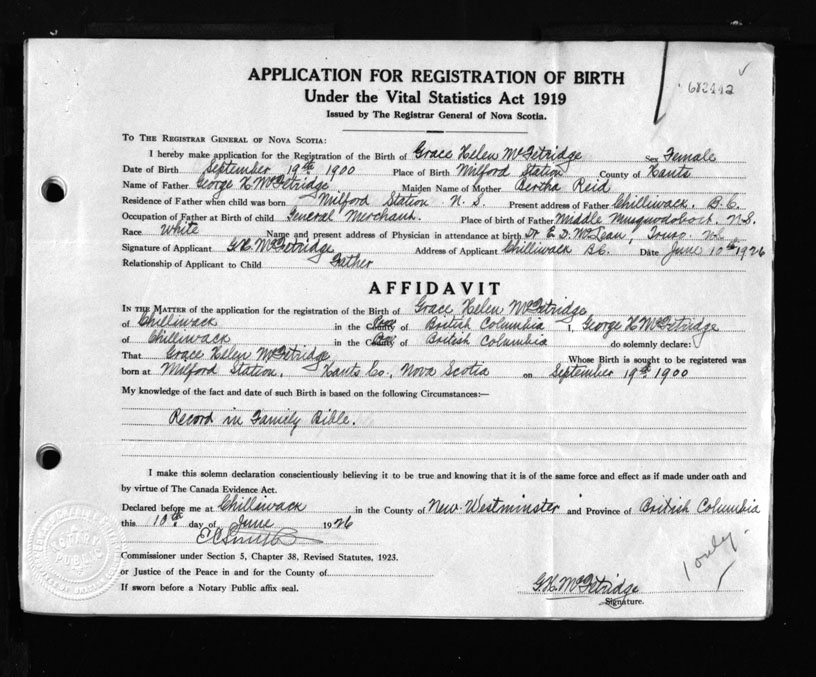 APPLICATION FOR REGISTRATION OF BIRTH
682442
Under the Vital Statistics Act 1919
Issued by The Registrar General of Nova Scotia.
TO THE REGISTRAR GENERAL OF NOVA SCOTIA:
I hereby make application for the Registration of the Birth of Grace Helen McFetridge Sex Female
Date of Birth September 19th 1900 Place of Birth Milford Station County of Hants
Name of Father George H McFetridge Maiden Name of Mother Bertha Reid
Residence of Father when child was born Milford Station N. S. Present address of Father Chilliwack. B. C.
Occupation of Father at Birth of child General Merchant. Place of birth of Father Middle Musquodoboit. N.S.
Race White Name and present address of Physician in attendance at birth Dr E. D. McLean, Truro. N.S.
Signature of Applicant G.H. McFetridge Address of Applicant Chilliwack B.C. Date June 10th 1926
Relationship of Applicant to Child Father
AFFIDAVIT
IN THE MATTER of the application for the registration of the Birth of Grace Helen McFetridge
of Chilliwack in the of British Columbia I, George H McFetridge
of Chilliwack in the of British Columbia do solemnly declare:
That Grace Helen McFetridge Whose Birth is sought to be registered was
born at Milford Station, Hants Co., Nova Scotia on September 19th 1900
My knowledge of the fact and date of such Birth is based on the following Circumstances:—
Record in Family Bible.
I make this solemn declaration conscientiously believing it to be true and knowing that it is of the same force and effect as if made under oath and
by virtue of The Canada Evidence Act.
Declared before me at Chilliwack in the County of New Westminster and Province of British Columbia
this 10th. day of June 1926
Commissioner under Section 5, Chapter 38, Revised Statutes, 1923.
or Justice of the Peace in and for the County of
If sworn before a Notary Public affix seal.
1 only.
G.H. McFetridge
Signature.